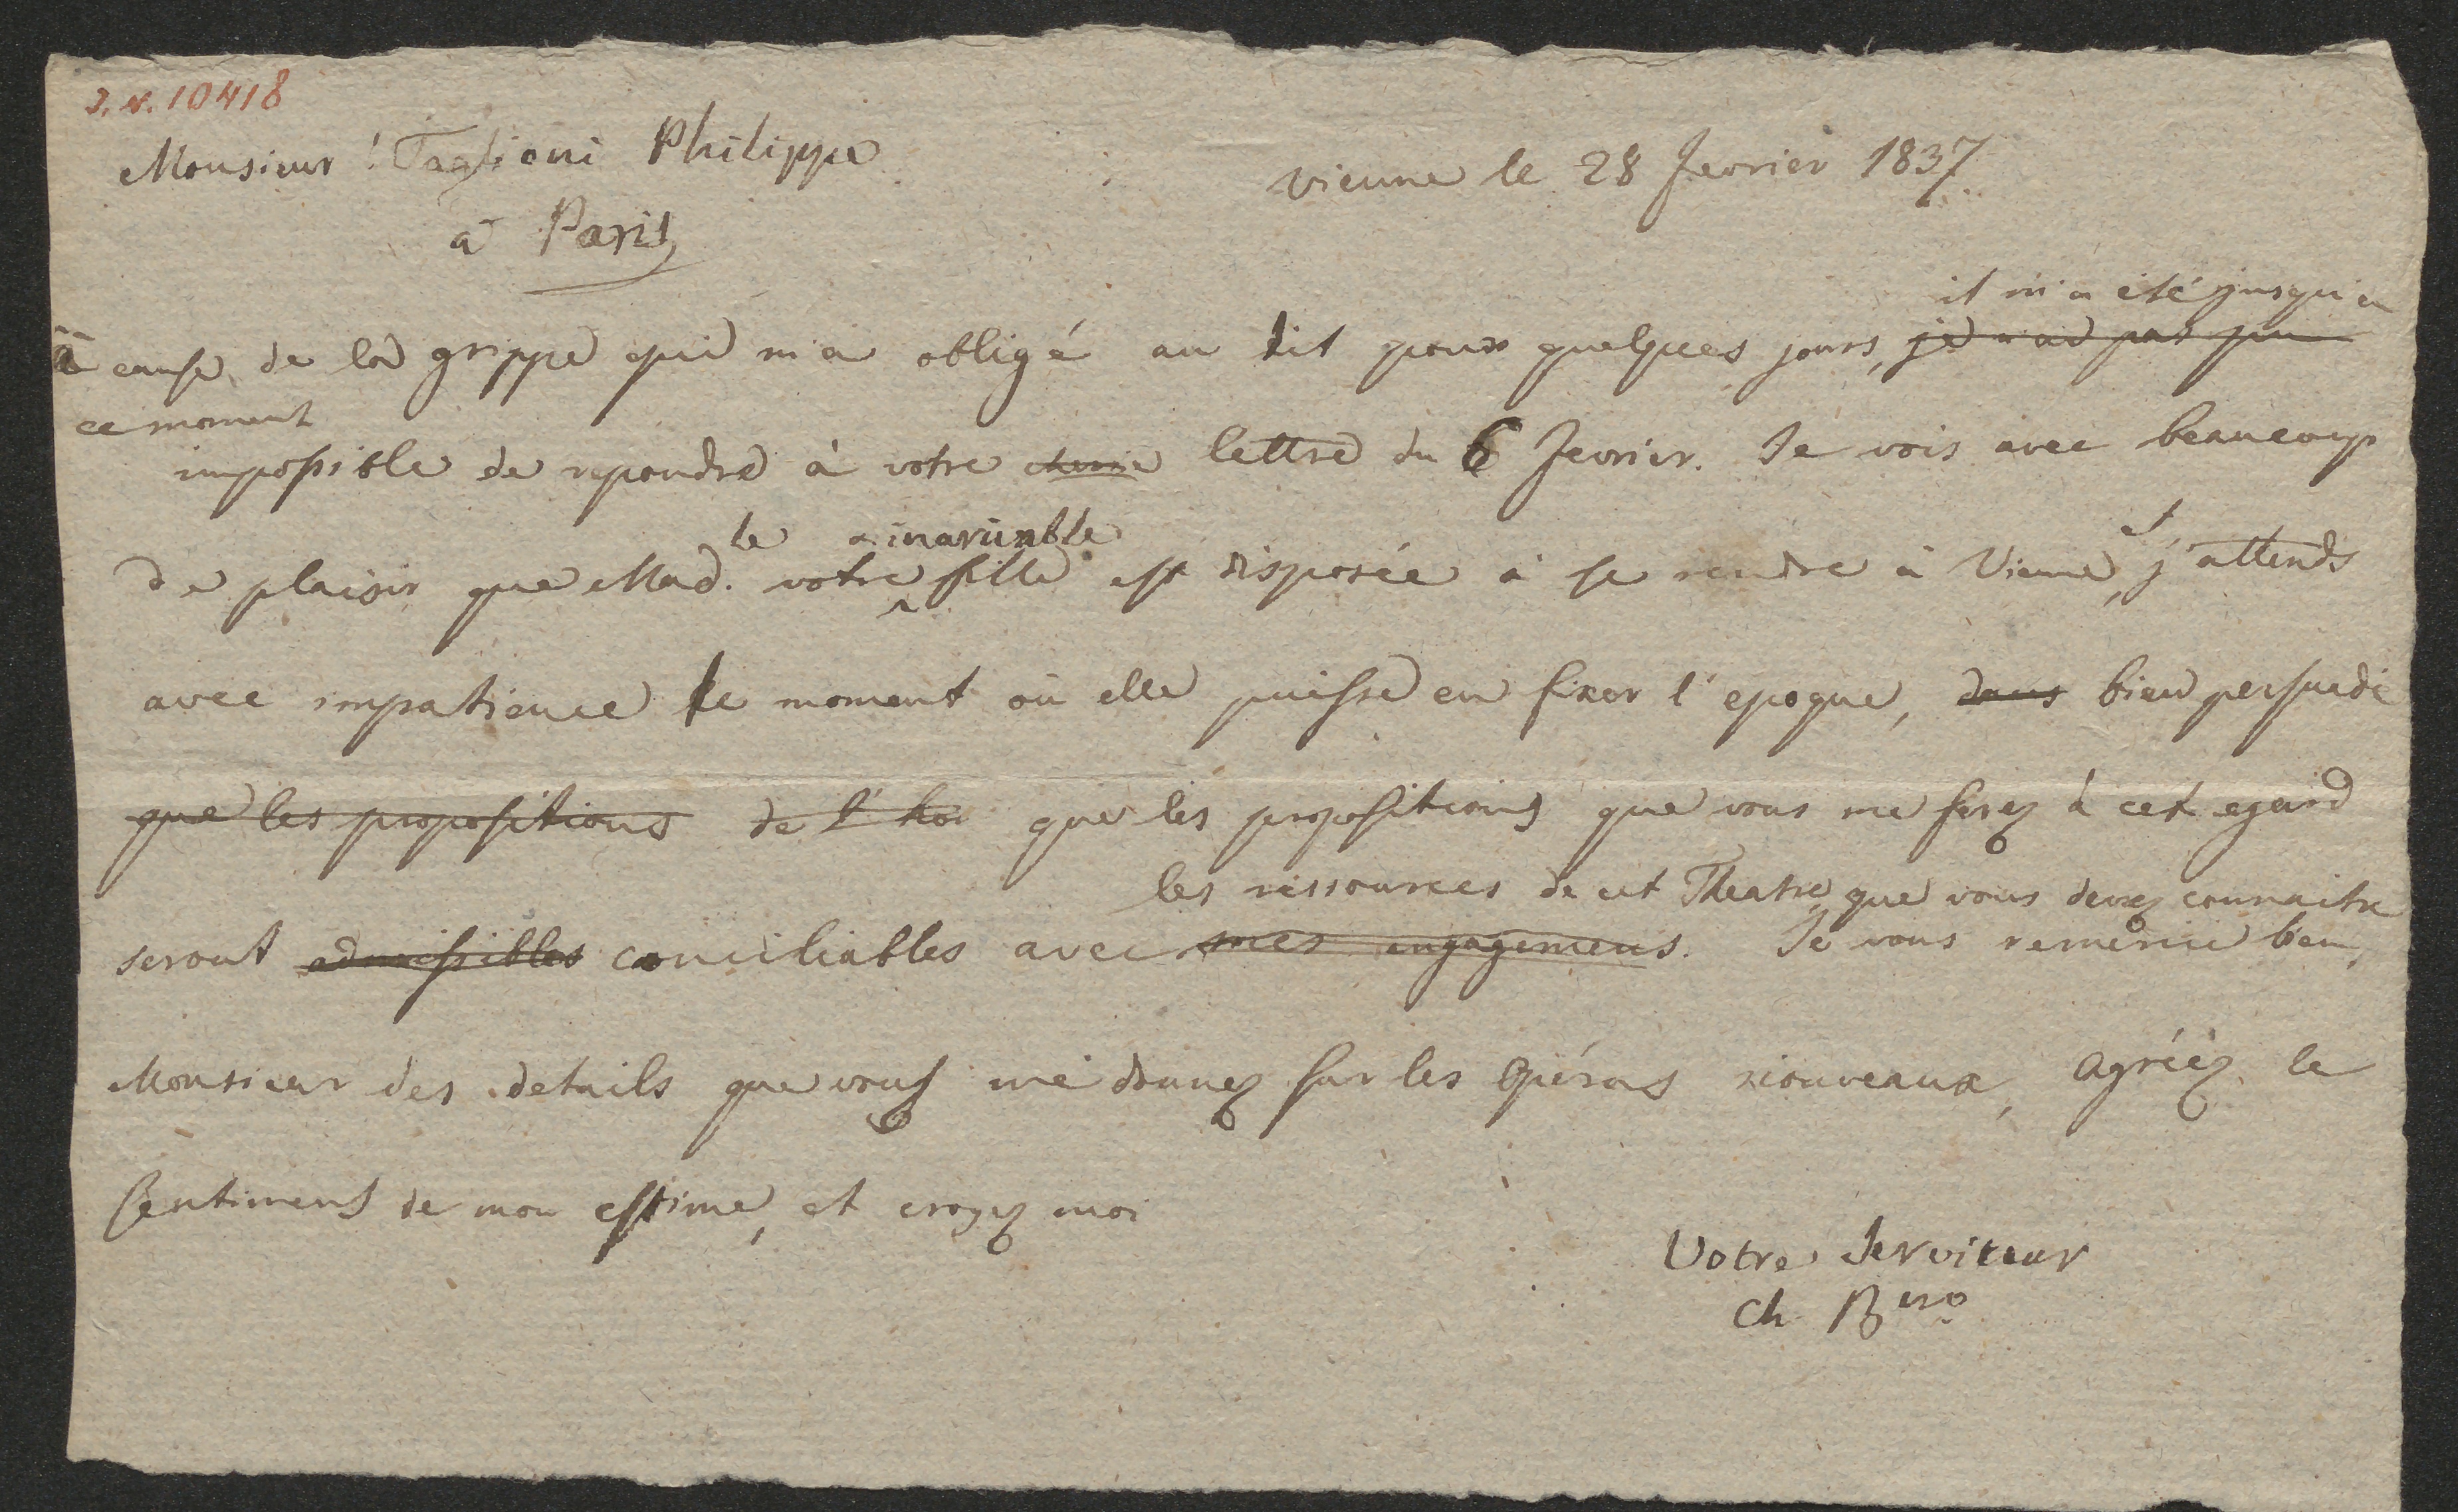 J. N. 10418
Monsieur ! Taglioni Philippe
vienne le 28 fevrier 1837.
à Paris
il m'a été jusqu'à
à cause de la grippe qui m'a obligé au lit pour quelques jours, je n'ai pas pu
ce moment
impossible de repondre à votre lettre du 6 fevrier. Je vois avec beaucoup
le
et
de plaisir que Mad. votre fille est disposée à se rendre à Vienne, j'attends
avec impatience le moment où elle puisse en fixer l'epoque, dans bien persuadé
que les propositions de l'ho que les propositions que vous me ferez à cet egard
les ressources de cet Theatre, que vous devez connaitre
seront admissibles conciliables avec mes engagemens. Je vous remercie bien,
Monsieur des details que vous me donnez sur les Opéras nouveaux, agréez le
sentimens de mon estime, et croyez moi
Votre Serviteur
Ch